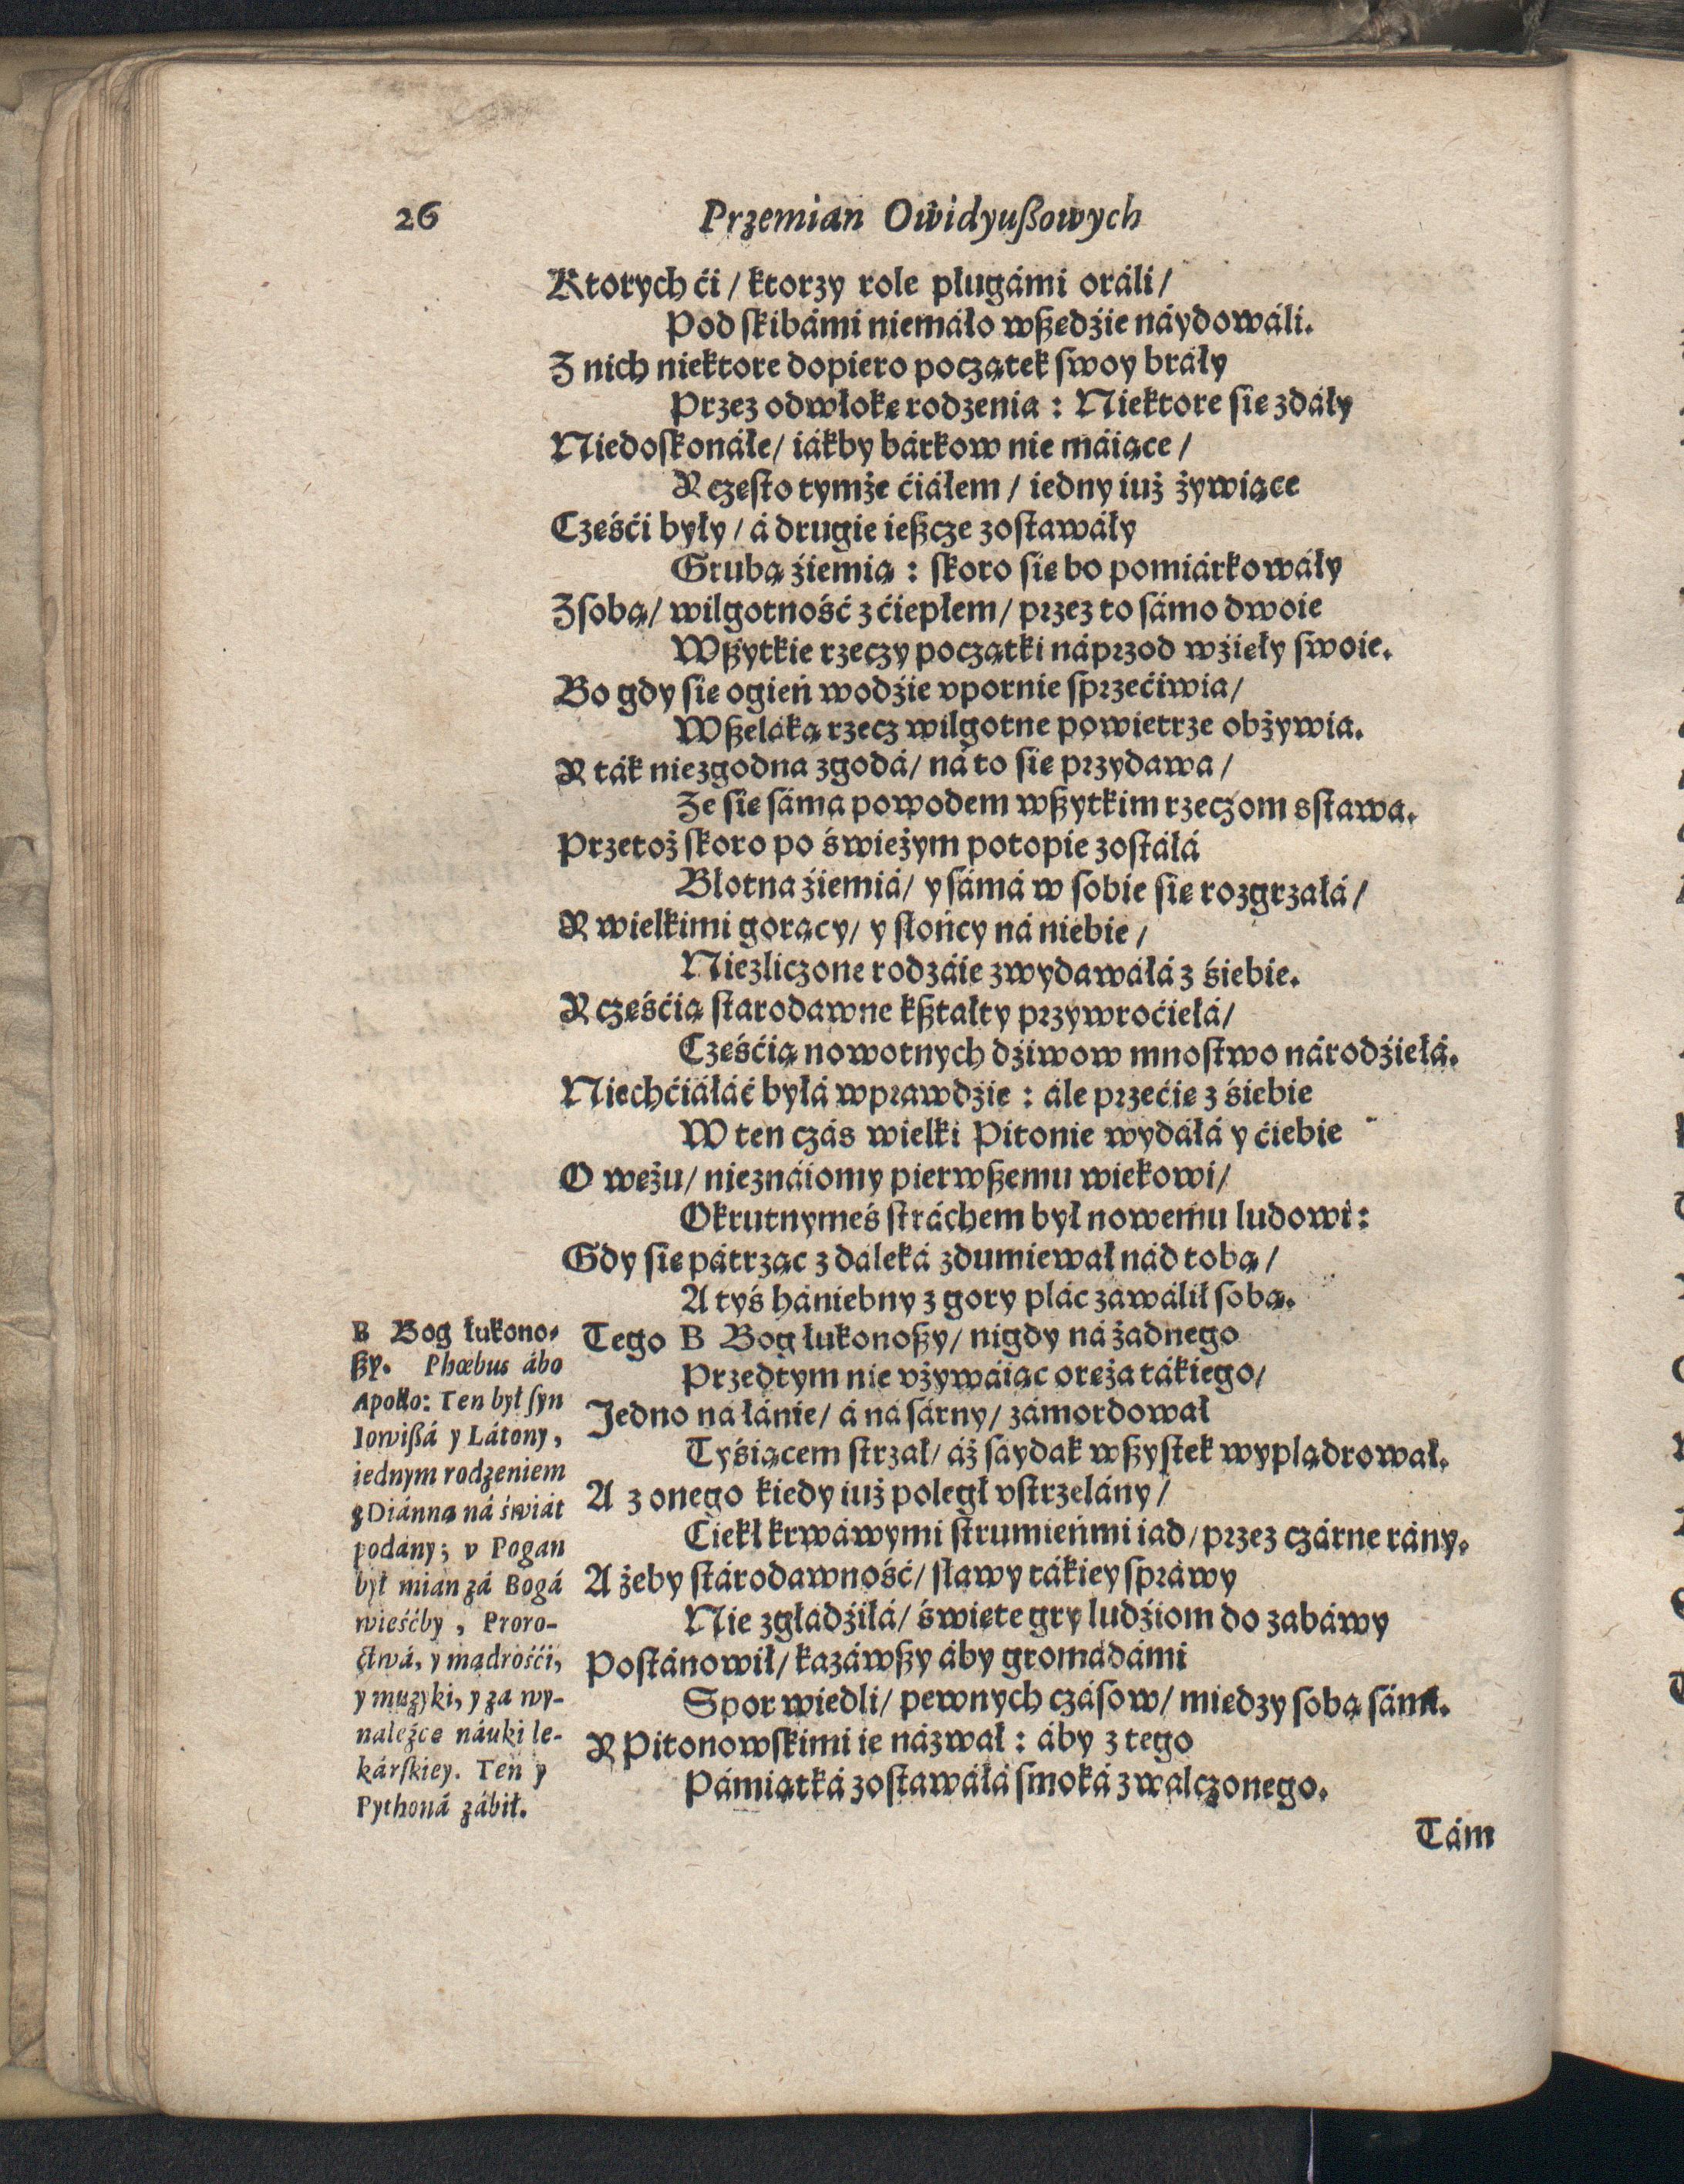 26
Przemian Owidyußowych
Ktorych ći / ktorzy role pługámi oráli /
Pod ſkibámi niemáło wßedźie náydowáli.
Z nich niektore dopiero początek ſwoy bráły
Przez odwłokę rodzenia : Niektore ſie zdáły
Niedoſkonáłe / iákby bárkow nie máiące /
Y częſto tymże ćiáłem / iedny iuż żywiące
Częśći były / á drugie ießcze zoſtawáły
Grubą źiemią : ſkoro ſię bo pomiárkowáły
Zſobą / wilgotność z ćiepłem / przez to ſámo dwoie
Wßytkie rzeczy początki náprzod wźięły ſwoie.
Bo gdy ſie ogień wodźie vpornie ſprzećiwia /
Wßeláką rzecz wilgotne powietrze obżywia.
Y ták niezgodna zgodá / ná to ſie przydawa /
Ze ſie ſámá powodem wßytkim rzeczom sſtawa.
Przetoż ſkoro po świeżym potopie zoſtáłá
Błotna źiemiá / y ſámá w ſobie ſię rozgrzałá /
Y wielkimi gorący / y ſłońcy ná niebie /
Niezliczone rodzáie zwydawáłá z śiebie.
Y częśćią ſtarodawne kßtałty przywroćiełá /
Częśćią nowotnych dźiwow mnoſtwo národźiełá.
Niechćiáłáć byłá wprawdźie : ále przećię z śiebie
W ten czás wielki Pitonie wydáłá y ćiebie
O wężu / nieznáiomy pierwßemu wiekowi /
Okrutnymeś ſtráchem był nowemu ludowi :
Gdy ſie pátrząc z dáleká zdumiewał nád tobą /
A tyś hániebny z gory plác záwálił ſobą.
Tego B Bog łukonoßy / nigdy ná żadnego
Przedtym nie vżywáiąc oręża tákiego /
Jedno ná łánie / á ná ſárny / zámordował
Tyśiącem ſtrzał / áż ſáydak wßyſtek wyplądrował.
A z onego kiedy iuż poległ vſtrzelány /
Ciekł krwáwymi ſtrumieńmi iad / przez czárne rány.
A żeby ſtárodawność / ſławy tákiey ſpráwy
Nie zgłádźiłá / święte gry ludźiom do zabáwy
Poſtánowił / kazáwßy áby gromádámi
Spor wiedli / pewnych czáſow / miedzy ſobą ſámi.
Y Pitonowſkimi ie názwał : áby z tego
Pámiątká zoſtawáłá ſmoká zwalczonego.
B Bog łukono-
ßy. Phœbus ábo
Apollo: Ten był ſyn
Iowißá y Látony,
iednym rodzeniem
z Diánną ná świát
podány; v Pogan
był mian zá Bogá
wieśćby, Proro-
ctwá, y mądrośći,
y muzyki, y za wy-
naleźcę náuki le-
kárſkiey. Ten y
Pythoná zábił.
Tám